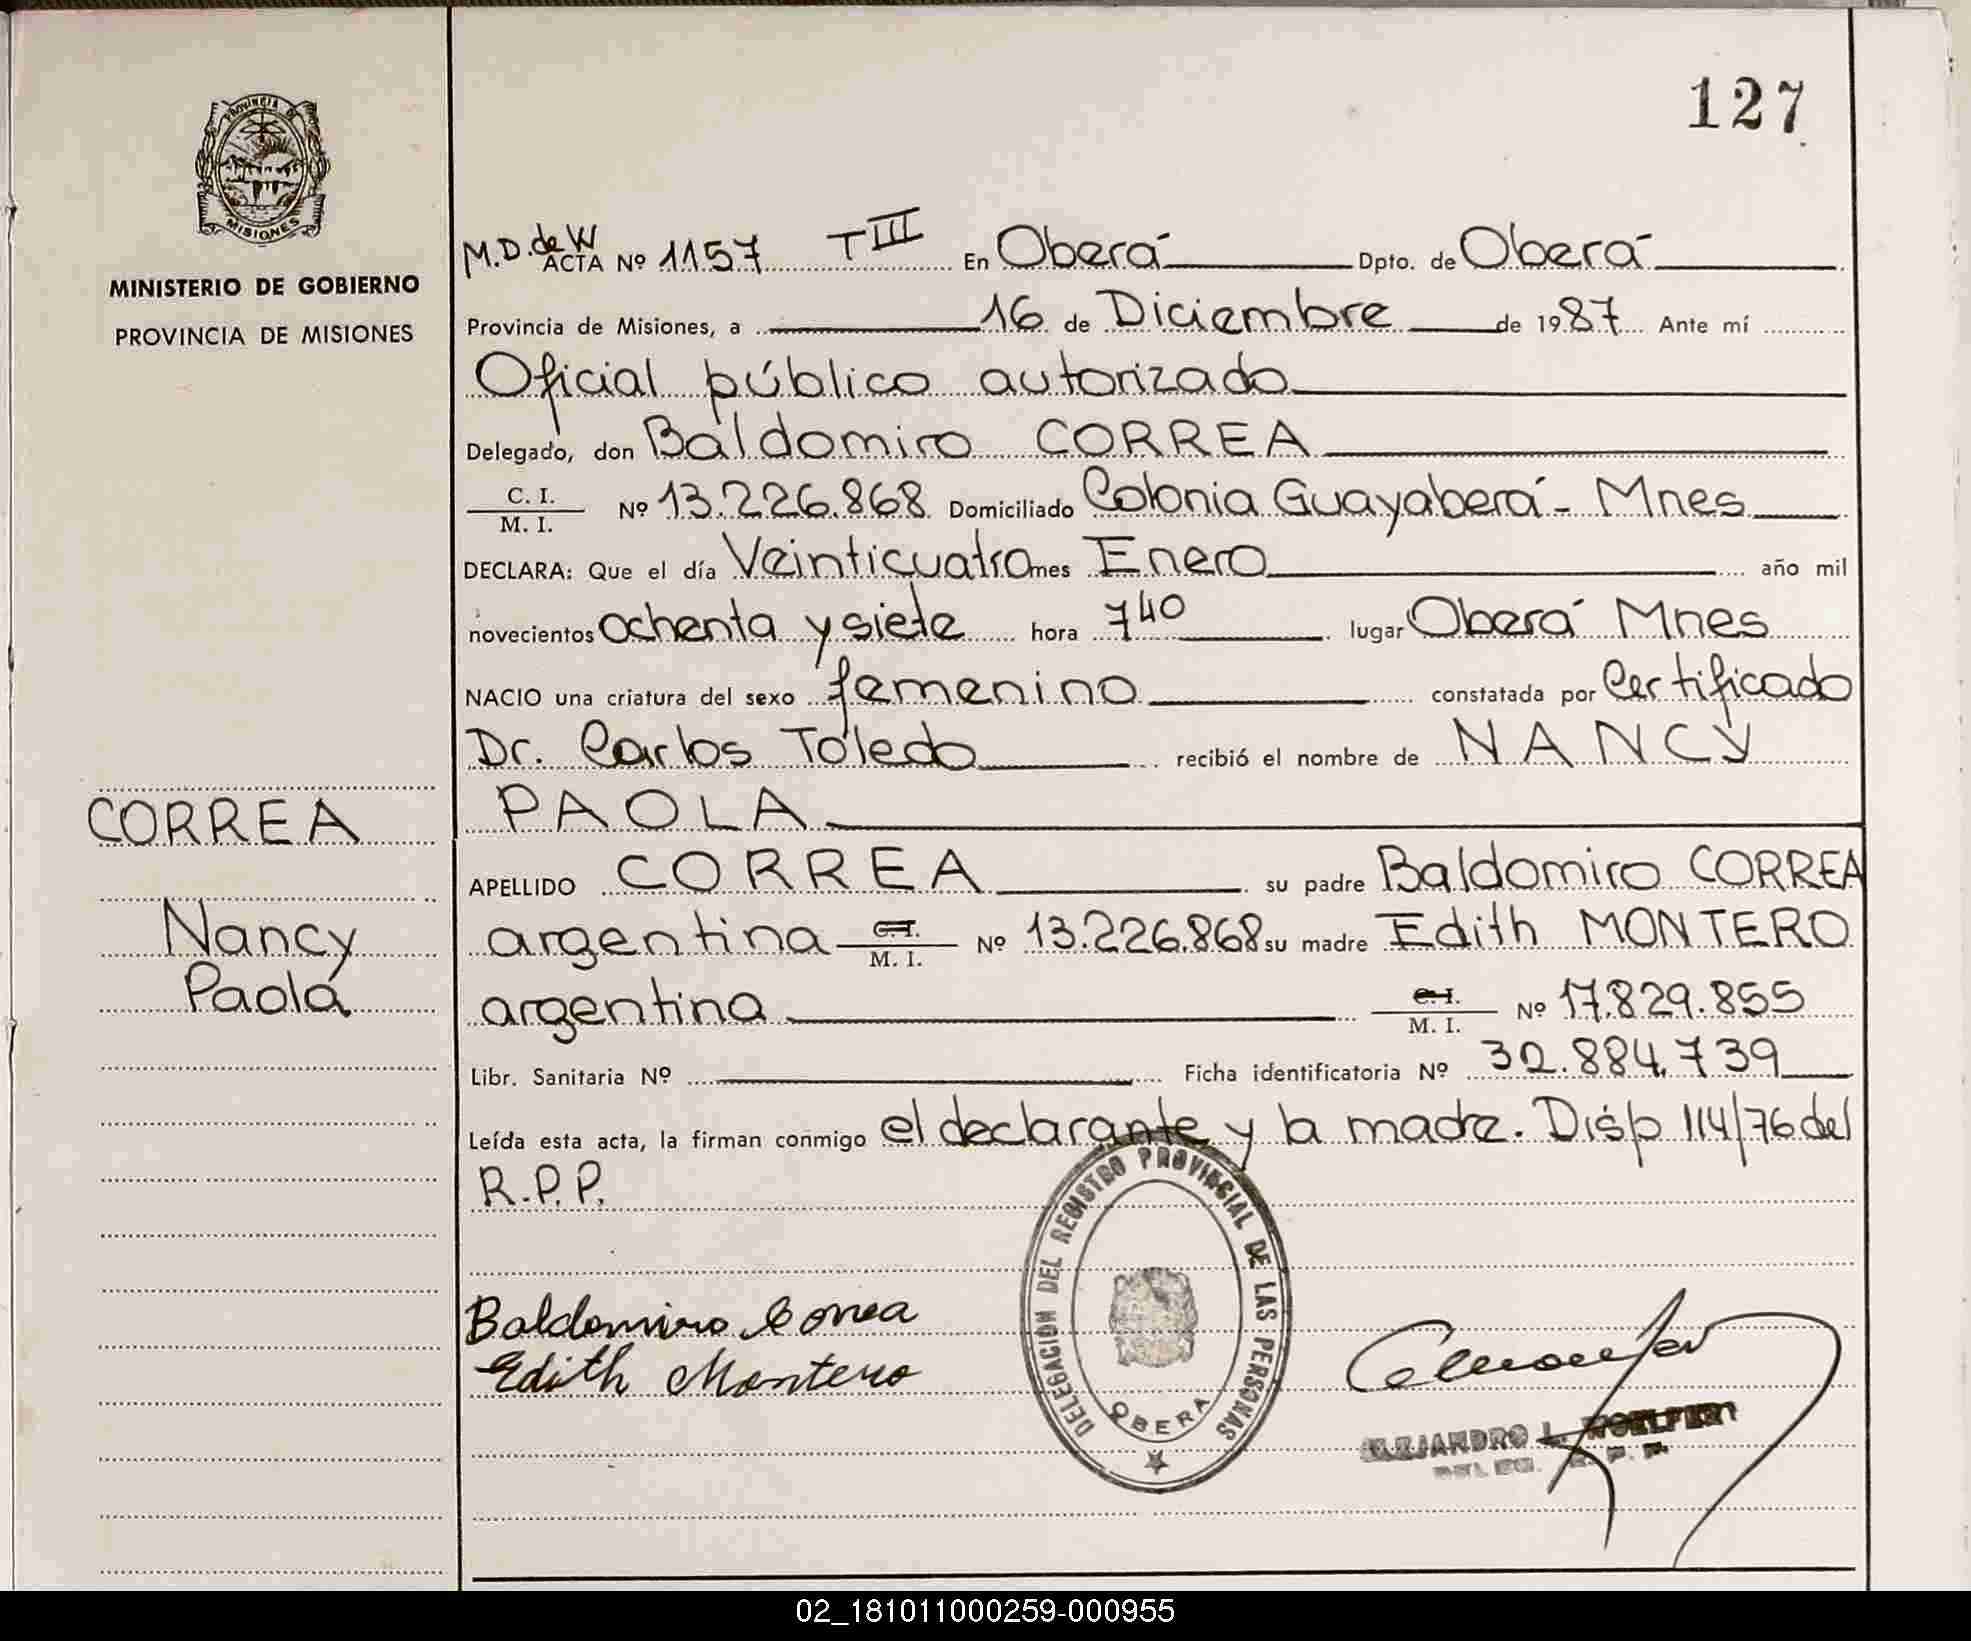 127
PROVINCIA DE
MISIONES
MINISTERIO DE GOBIERNO
PROVINCIA DE MISIONES
M.D. de W
ACTA Nº 1157 T III En Oberá Dpto. de Oberá
Provincia de Misiones, a 16 de Diciembre de 1987 Ante mí
Oficial público autorizado
Delegado, don Baldomiro CORREA
C. I.
M. I. Nº 13.226.868 Domiciliado Colonia Guayaberá - Mnes
DECLARA: Que el día Veinticuatro mes Enero año mil
novecientos ochenta y siete hora 7 40 lugar Oberá Mnes
NACIO una criatura del sexo femenino constatada por Certificado
Dr. Carlos Toledo recibió el nombre de NANCY
PAOLA
CORREA
Nancy
Paola
APELLIDO CORREA su padre Baldomiro CORREA
argentina C. I. M. I. Nº 13.226.868 su madre Edith MONTERO
argentina C. I. M. I. Nº 17.829.855
Libr. Sanitaria Nº Ficha identificatoria Nº 32.884.739
Leída esta acta, la firman conmigo el declarante y la madre. Disp 114/76 del
R.P.P.
DELEGACION DEL REGISTRO PROVINCIAL DE LAS PERSONAS
OBERA
Baldomiro Correa
Edith Montero
ALEJANDRO L.
02_181011000259-000955